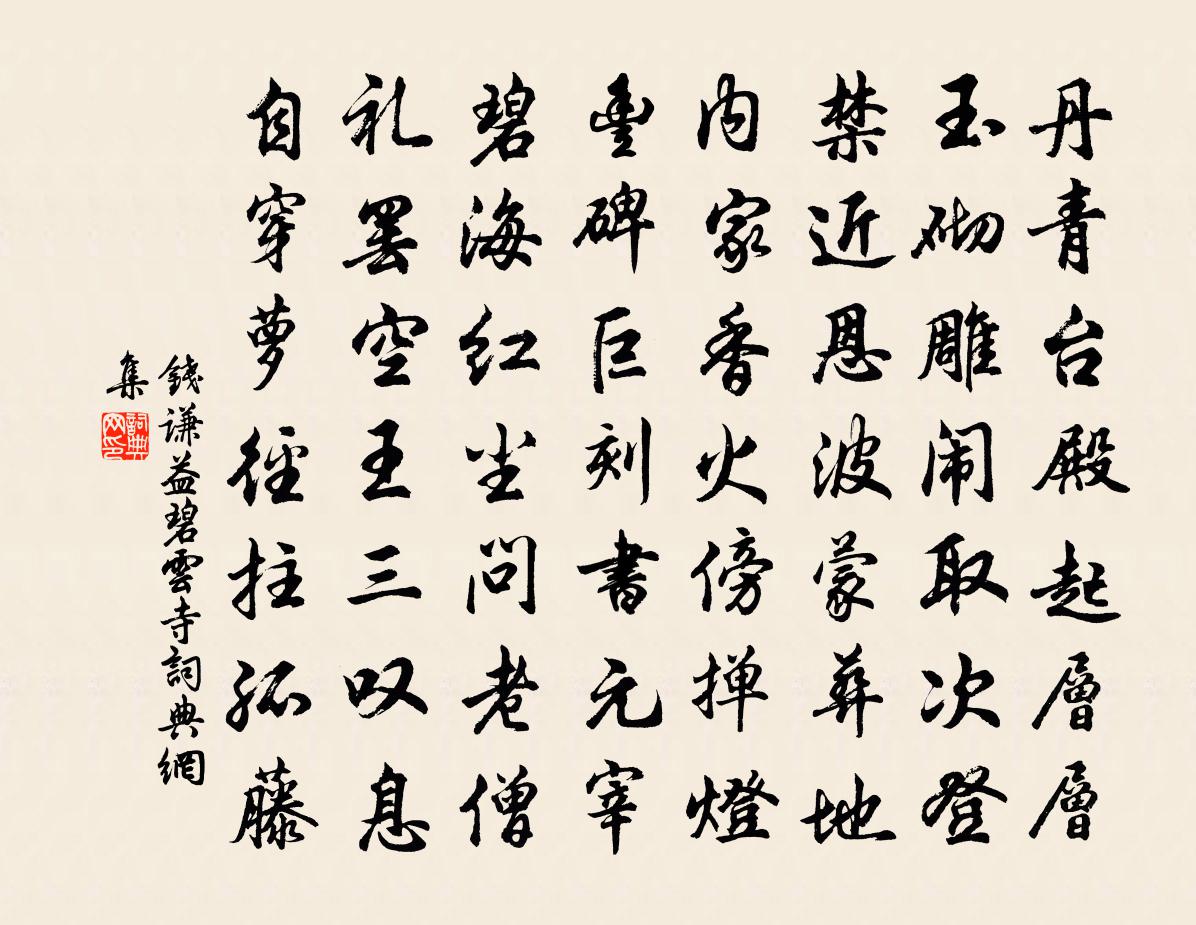 丹青台殿起層層
玉砌雕闹取次登
禁近恩波蒙葬地
内家香火傍掸燈
豐碑巨刻書元宰
碧海红尘問老僧
礼罢空王三叹息
自穿萝径拄孤藤
錢谦益碧雲寺詞典網
集
詞典
网印